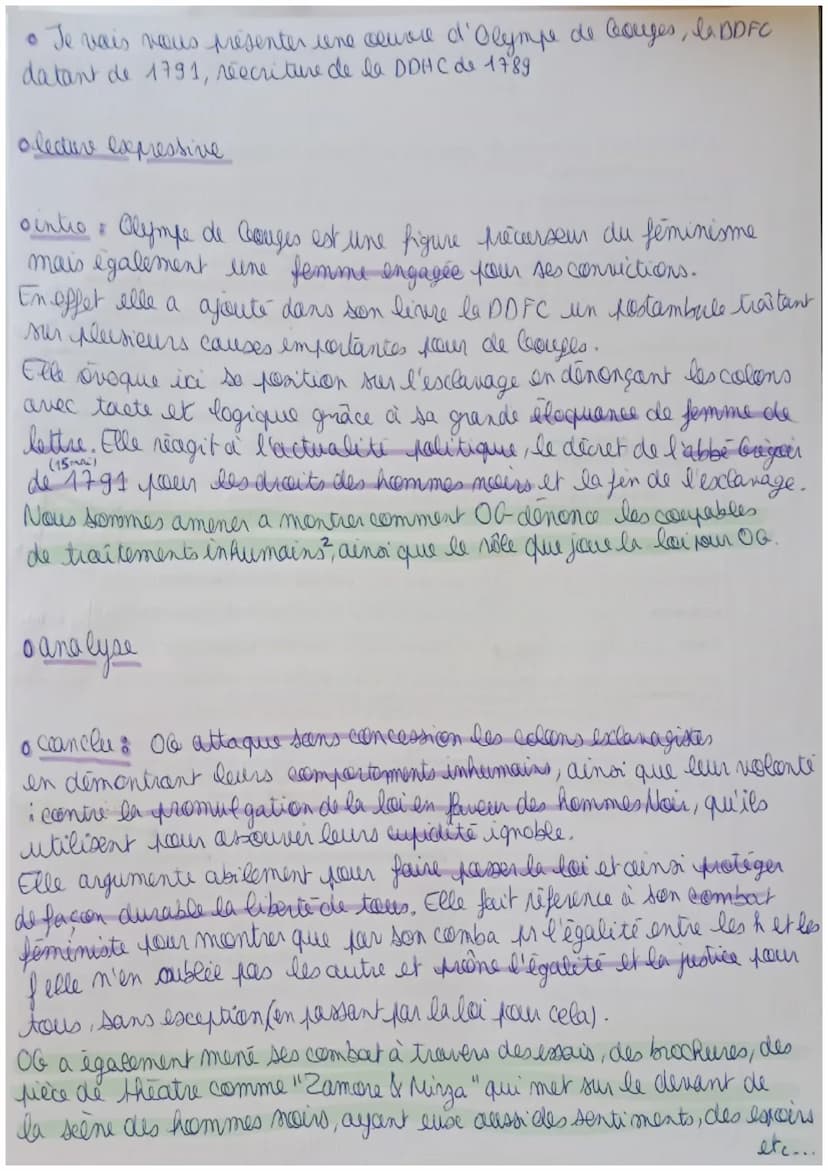 • Je vais vous présenter une oeuvre d'Olympe de Gouges, la DDFC
datant de 1791, réecriture de la DDHC de 1789
o lecture expressive
o intro : Olympe de Gouges est une figure précurseur du féminisme
mais également une femme engagée pour ses convictions.
En effet elle a ajouté dans son livre la DDFC un postambule traîtant
sur plusieurs causes importantes pour de Gouges.
Elle évoque ici sa position sur l'esclavage en dénonçant les colons
avec tacte et logique grâce à sa grande éloquance de femme de
lettre. Elle réagit à l'actualité politique, le décret de l'abbé Grégoir
(15 mai)
de 1791 pour les droits des hommes noirs et la fin de l'esclavage.
Nous sommes amener a montrer comment OG dénonce les coupables
de traitements inhumains², ainsi que le rôle que joue la loi pour OG.
o analyse
o conclu : OG attaque sans concession les colons esclavagistes
en démontrant leurs comportements inhumains, ainsi que leur volonté
: contre la promulgation de la loi en faveur des hommes Noir, qu'ils
utilisent pour assouver leurs cupidité ignoble.
Elle argumente abilement pour faire passer la loi et ainsi protéger
de façon durable la liberté de tous. Elle fait référence à son combat
féministe pour montrer que par son comba pr l'égalité entre les h et les
f elle n'en oublie pas les autre et prône l'égalité et la justice pour
tous, sans exception (en passant par la loi pour cela).
OG a également mené ses combat à travers des essais, des brochures, des
pièce de théatre comme "Zamore & Mirza" qui met sur le devant de
la scène des hommes noirs, ayant eux aussi des sentiments, des espoirs
etc...